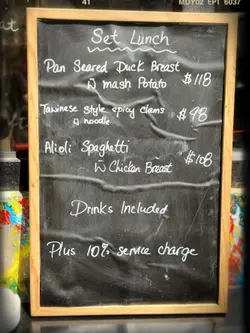 41
MDY02 EPT 6037
Set Lunch
Pan Seared Duck Breast
W mash Potato $118
Taiwinese style spicy clams
W noodle $98
Alioli Spaghetti
W Chicken Breast $108
Drinks Included
Plus 10% service charge